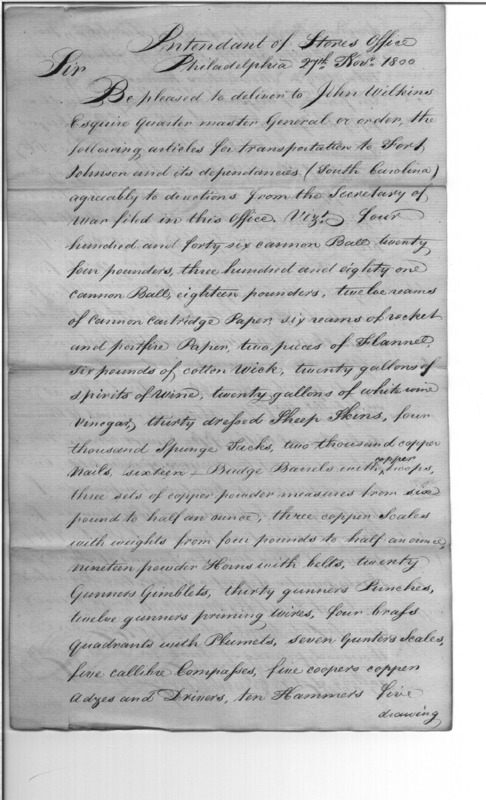 Intendant of Stores Office
Philadelphia 27th. Novr. 1800
Sir
Be pleased to deliver to John Wilkins
Esquire Quarter master General or order, the
following articles for transportation to Fort
Johnson and its dependancies (South Carolina)
agreeably to directions from the Secretary of
War filed in this Office. Vizt. Four
hundred and forty six cannon Ball twenty
four pounders, three hundred and eighty one
cannon Ball, eighteen pounders, twelve reams
of Cannon Cartridge Paper, six reams of rocket
and portfire Paper, two pieces of Flannel,
six pounds of cotton Wick, twenty gallons of
spirits of Wine, twenty gallons of white wine
Vinegar, thirty dressed Sheep Skins, four
thousand Spunge Tacks, two thousand copper
Nails, sixteen Budge Barrels with copper hoops,
three sets of copper powder measures from six
pound to half an ounce, three copper Scales
with weights from four pounds to half an ounce,
nineteen powder Horns with belts, twenty
Gunners Gimblets, thirty gunners Punches,
twelve gunners priming wires, four brass
Quadrants with Plumets, seven Gunters Scales,
five callibre Compasses, five coopers copper
Adzes and Drivers, ten Hammers five
drawing